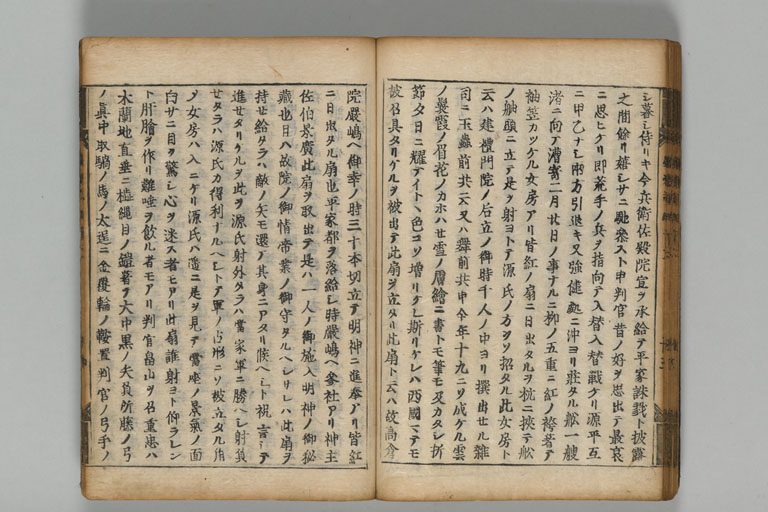 シ暮シ侍リキ今兵衛佐殿院宣ヲ承給テ平家誅戮ト披露
之間餘リ嬉シサニ馳參スト申判官昔ノ好ヲ思出テ最哀
ニ思ヒケリ即荒手ノ兵ヲ指向テ入替入替戰ケリ源平互
ニ甲乙ナシ兩方引退キ又強健處ニ沖ヨリ莊タル舩一艘
渚ニ向テ漕寄二月廿日ノ事ナルニ柳ノ五重ニ紅ノ袴著テ
袖笠カツケル女房アリ皆紅ノ扇ニ日出タルヲ杭ニ挾テ舩
ノ舳頭ニ立テ是ヲ射ヨトテ源氏ノ方ヲソ招タル此女房ト
云ハ建禮門院ノ后立ノ御時千人ノ中ヨリ撰出セル雜
司ニ玉蟲前共云又ハ舞前共申今年十九ニソ成ケル雲
ノ鬢霞ノ眉花ノカホハセ雪ノ膚繪ニ書トモ筆モ及カタシ折
節夕日ニ耀テイトヽ色コソ增リケレ斯リケレハ西國マテモ
被召具タリケルヲ被出テ此扇ヲ立タリ此扇ト云ハ故高倉
院嚴嶋ヘ御幸ノ時三十本切立テ明神ニ進奉アリ皆紅
ニ日出タル扇也平家都ヲ落給シ時嚴嶋ヘ參社アリ神主
佐伯景廣此扇ヲ取出テ是ハ一人ノ御施入明神ノ御秘
藏也日ハ故院ノ御情帝業ノ御守タルヘシサレハ此扇ヲ
持セ給タラハ敵ノ矢モ還テ其身ニアタリ候ヘシト祝言シテ
進セタリケルヲ此ヲ源氏射外タラハ當家軍ニ勝ヘシ射負
セタラハ源氏カ得利ナルヘシトテ軍ノ占形ニソ被立タル角
ノ女房ハ入ニケリ源氏ハ遙ニ是ヲ見テ當座ノ景氣ノ面
白サニ目ヲ驚シ心ヲ迷ス者モアリ此扇誰射ヨト仰ラレン
ト肝膽ヲ作リ難唾ヲ飲ル者モアリ判官畠山ヲ召重忠ハ
木蘭地直垂ニ縋繩目ノ鎧著テ大中黑ノ矢負所籐ノ弓
ノ眞中取鴾ノ馬ノ太逞ニ金覆輪ノ鞍置判官ノ弓手ノ